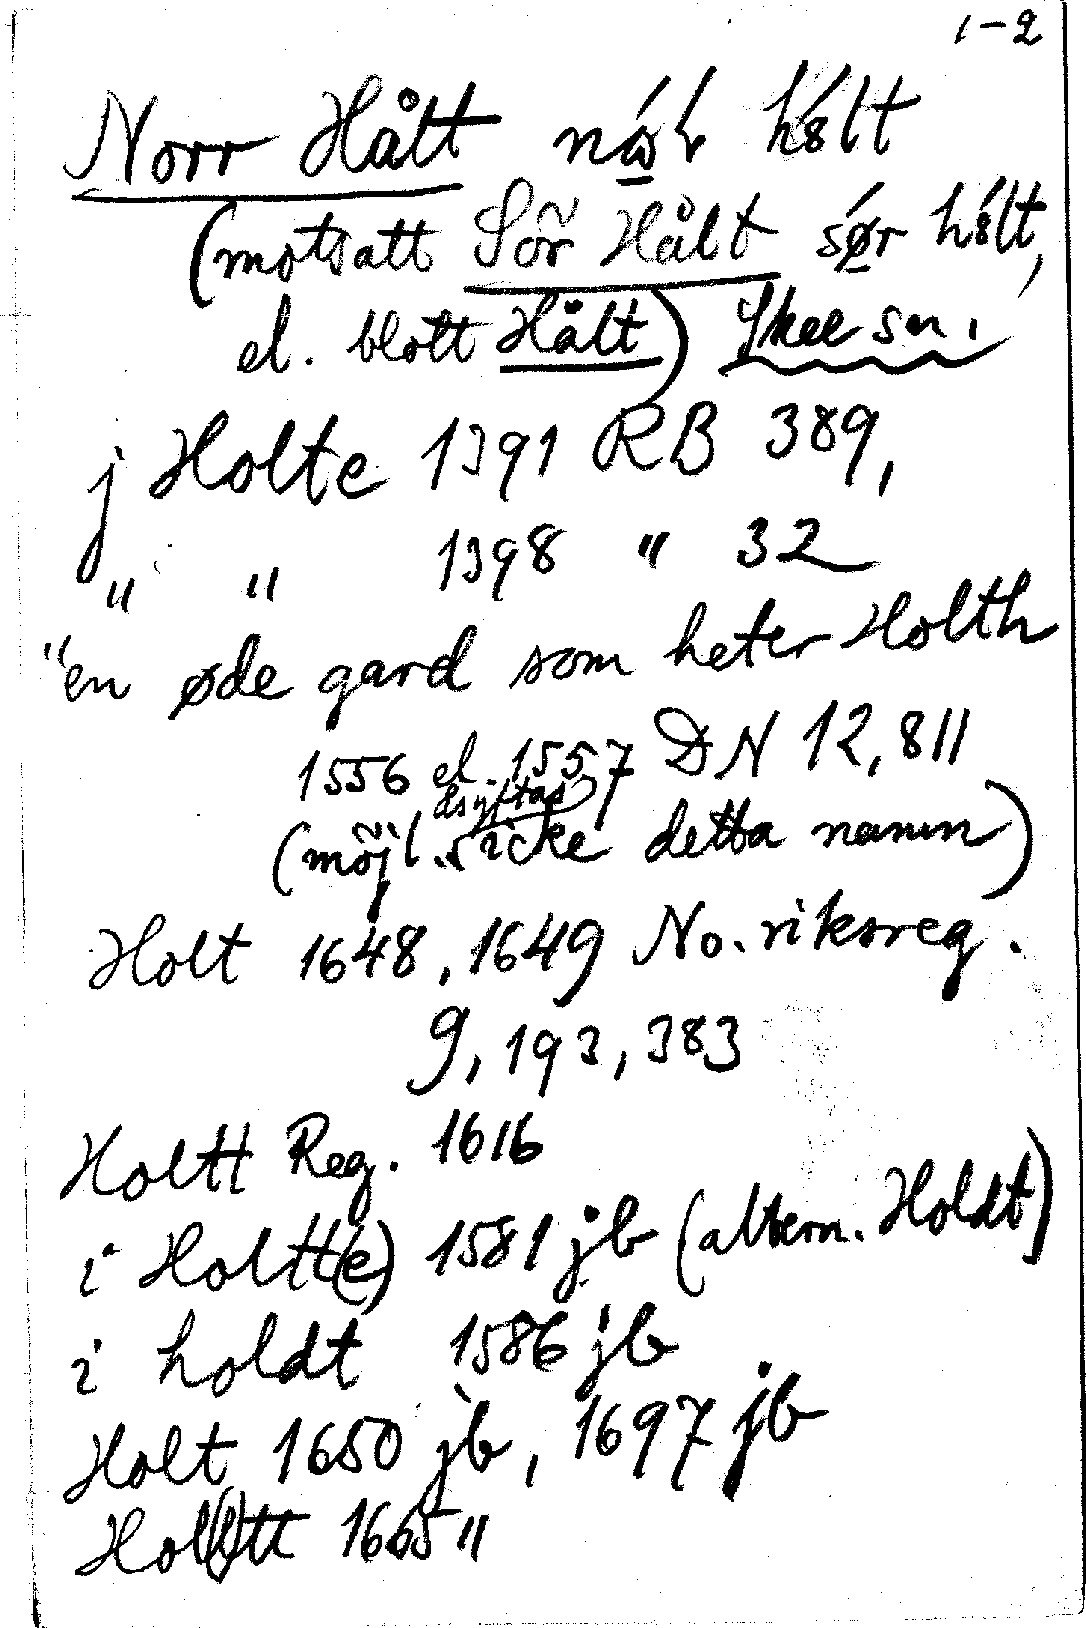 1-2
Norr Hålt
(motsatt Sör Hålt
el. blott Hålt) Skee sn.
j Holte 1391 RB 389,
" " 1398 " 32
"en øde gard som heter Holth
1556 el. 1557 DN 12,811
åsyftas
(möjl. icke detta namn)
Holt 1648, 1649 No. riksreg.
9, 193, 383
Holtt Reg. 1616
i Holtt(e) 1581 jb (altern. Holdt)
i holdt 1586 jb
Holt 1650 jb, 1697 jb
Hol(l)tt 1665 "